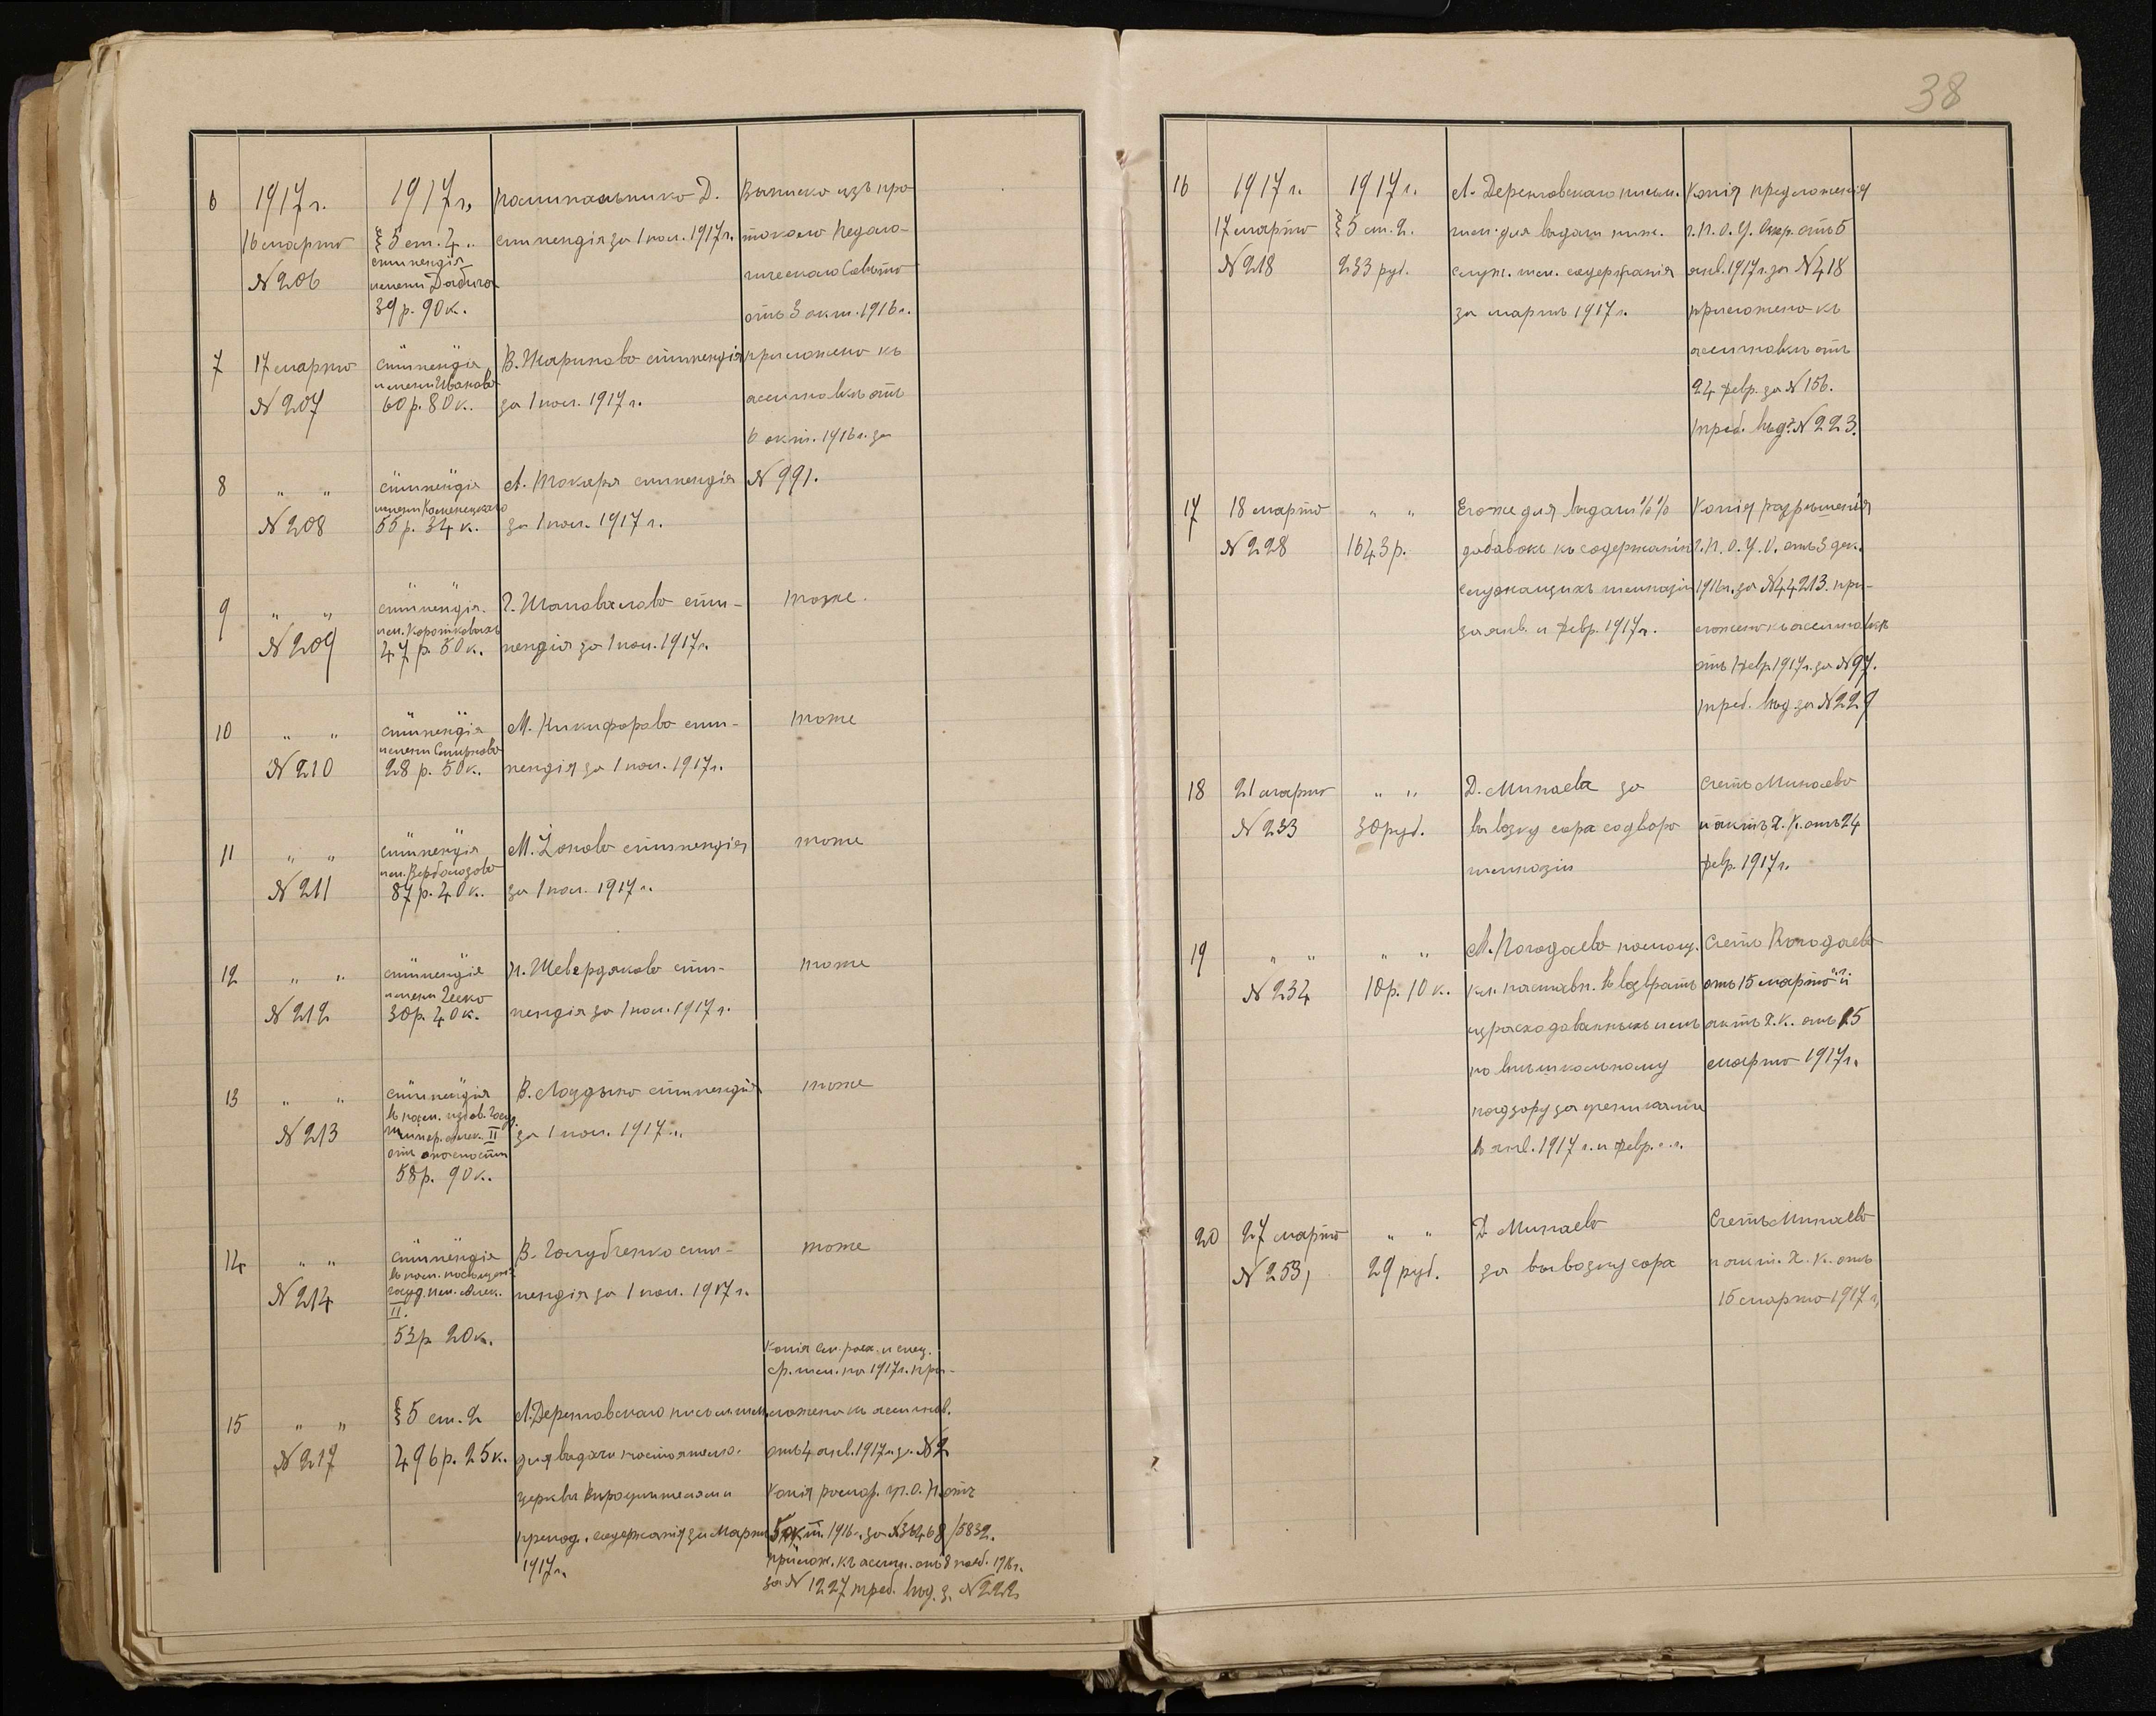 38
6 1917 г. 1917 г. Калиникова Д. Выписка изъ про
16 марта § 5 ст. 4. стипендія за 1 пол. 1917 г. токола Педаго-
стипендія
№ 206 имени гическаго Совѣта
39 р. 90 к. отъ 3 окт. 1916 г.
7 17 марта стипендія В. стипендія приложено къ
имени Иванова
№ 207 60 р. 80 к. за 1 пол. 1917 г. ассигновкѣ отъ
6 окт. 1916 г. за
8 " " стипендія А. Токаря стипендія № 991.
имени Каменецкаго
№ 208 55 р. 34 к. за 1 пол. 1917 г.
9 " " стипендія Г. Шаповалова сти- тоже.
им. Коротковыхъ
№ 209 47 р. 50 к. пендія за 1 пол. 1917 г.
10 " " стипендія М. Никифорова сти- тоже
имени Смирнова
№ 210 28 р. 50 к. пендія за 1 пол. 1917 г.
11 " " стипендія М. стипендія тоже
им.
№ 211 87 р. 40 к. за 1 пол. 1917 г.
12 " " стипендія П. Шевердякова сти- тоже
имени
№ 212 30 р. 40 к. пендія за 1 пол. 1917 г.
13 " " стипендія В. стипендія тоже
въ пам. избав. Госуд.
№ 213 Импер. Алек. II за 1 пол. 1917 г.
отъ опасности
58 р. 90 к.
14 " " стипендія В. Голубченко сти- тоже
въ пам. посѣщенія
№ 214 Госуд. Имп. Алек. пендія за 1 пол. 1917 г.
II.
53 р. 20 к.
Копія см. расх. и спец.
ср. гим. на 1917 г. при-
15 " " § 5 ст. 2 А. Дерикавскаго письм. гим. ложена къ ассигнов.
№ 217 496 р. 25 к. для выдачи настоятелю отъ 4 янв. 1917 г. за № 2
церкви и учителямъ Копія распор. гр. О. П. отъ
препод. содержанія за Мартъ 5 окт. 1916 г. за № 36468/5832.
1917 г. прилож. къ ассигн. отъ 8 нояб. 1916 г.
за № 1227 треб. вѣд. з. № 222
16 1917 г. 1917 г. А. Дерикавскаго письм. Копія предложенія
17 марта § 5 ст. 2. гим. для выдачи низш. г. П. О. У. Окр. отъ 5
№ 218 233 руб. служ. гим. содержанія янв. 1917 г. за № 418
за мартъ 1917 г. приложено къ
ассигновкѣ отъ
24 февр. за № 156.
треб. вѣд. № 223.
17 18 марта " " Егоже для выдачи %% Копія разрѣшенія
№ 228 1643 р. добавокъ къ содержанію г. П. О. У. О. отъ 3 дек.
служащихъ гимназіи 1916 г. за № 44213. при-
за янв. и февр. 1917 г. ложено къ ассигновкѣ
отъ 1 февр 1917 г. за № 97.
треб. вѣд. за № 229
18 21 марта " " Д. Минаева за Счетъ Минаева
№ 233 30 руб. вывозку сора со двора и актъ Х. К. отъ 24
гимназіи февр. 1917 г.
19 " " " " М. Погодаева помощ. Счетъ Погодаева
№ 234 10 р. 10 к. кл. наставн. въ возвратъ отъ 15 марта с. г. и
израсходованныхъ имъ актъ Х. К. отъ 15
по внѣшкольному марта 1917 г.
надзору за учениками
въ янв. 1917 г. и февр. с. г.
20 27 марта " " Д. Минаева Счетъ Минаева
№ 253, 29 руб. за вывозку сора и акт. Х. К. отъ
15 марта 1917 г.